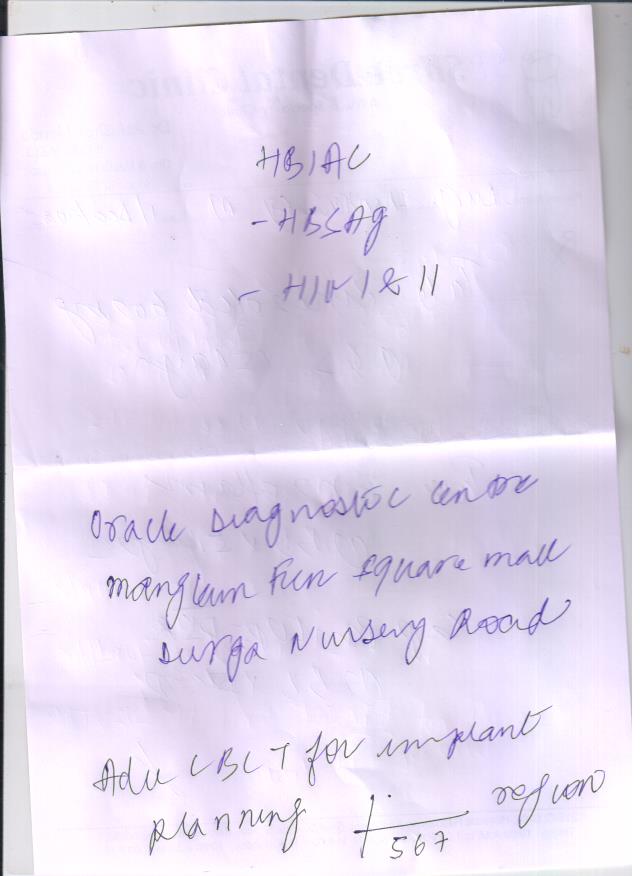 HB1AC
- HBSAg
- HIV I & II
Oracle Diagnostic Centre
Manglam Fun Square mall
Durga Nursery Road
Adv CBCT for implant
planning 567 region